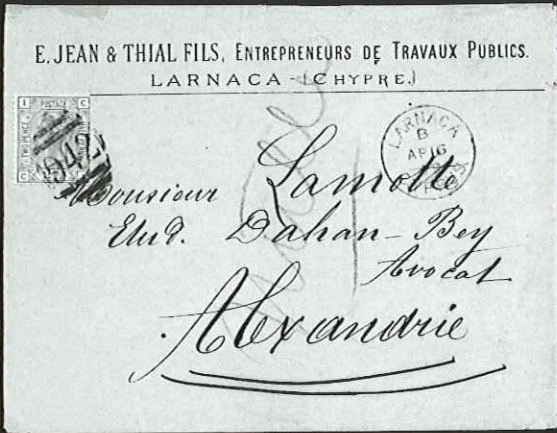 E. JEAN & THIAL FILS, ENTREPRENEURS DE TRAVAUX PUBLICS.
LARNACA - (CHYPRE.)
I POSTAGE C
C I
942
LARNACA
B
AP 16
Monsieur Lamotte
Etud. Dahan-Bey
Avocat
Alexandrie